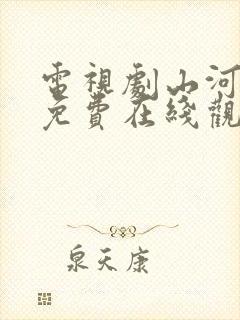 電視劇山河
免費在綫觀
泉天康